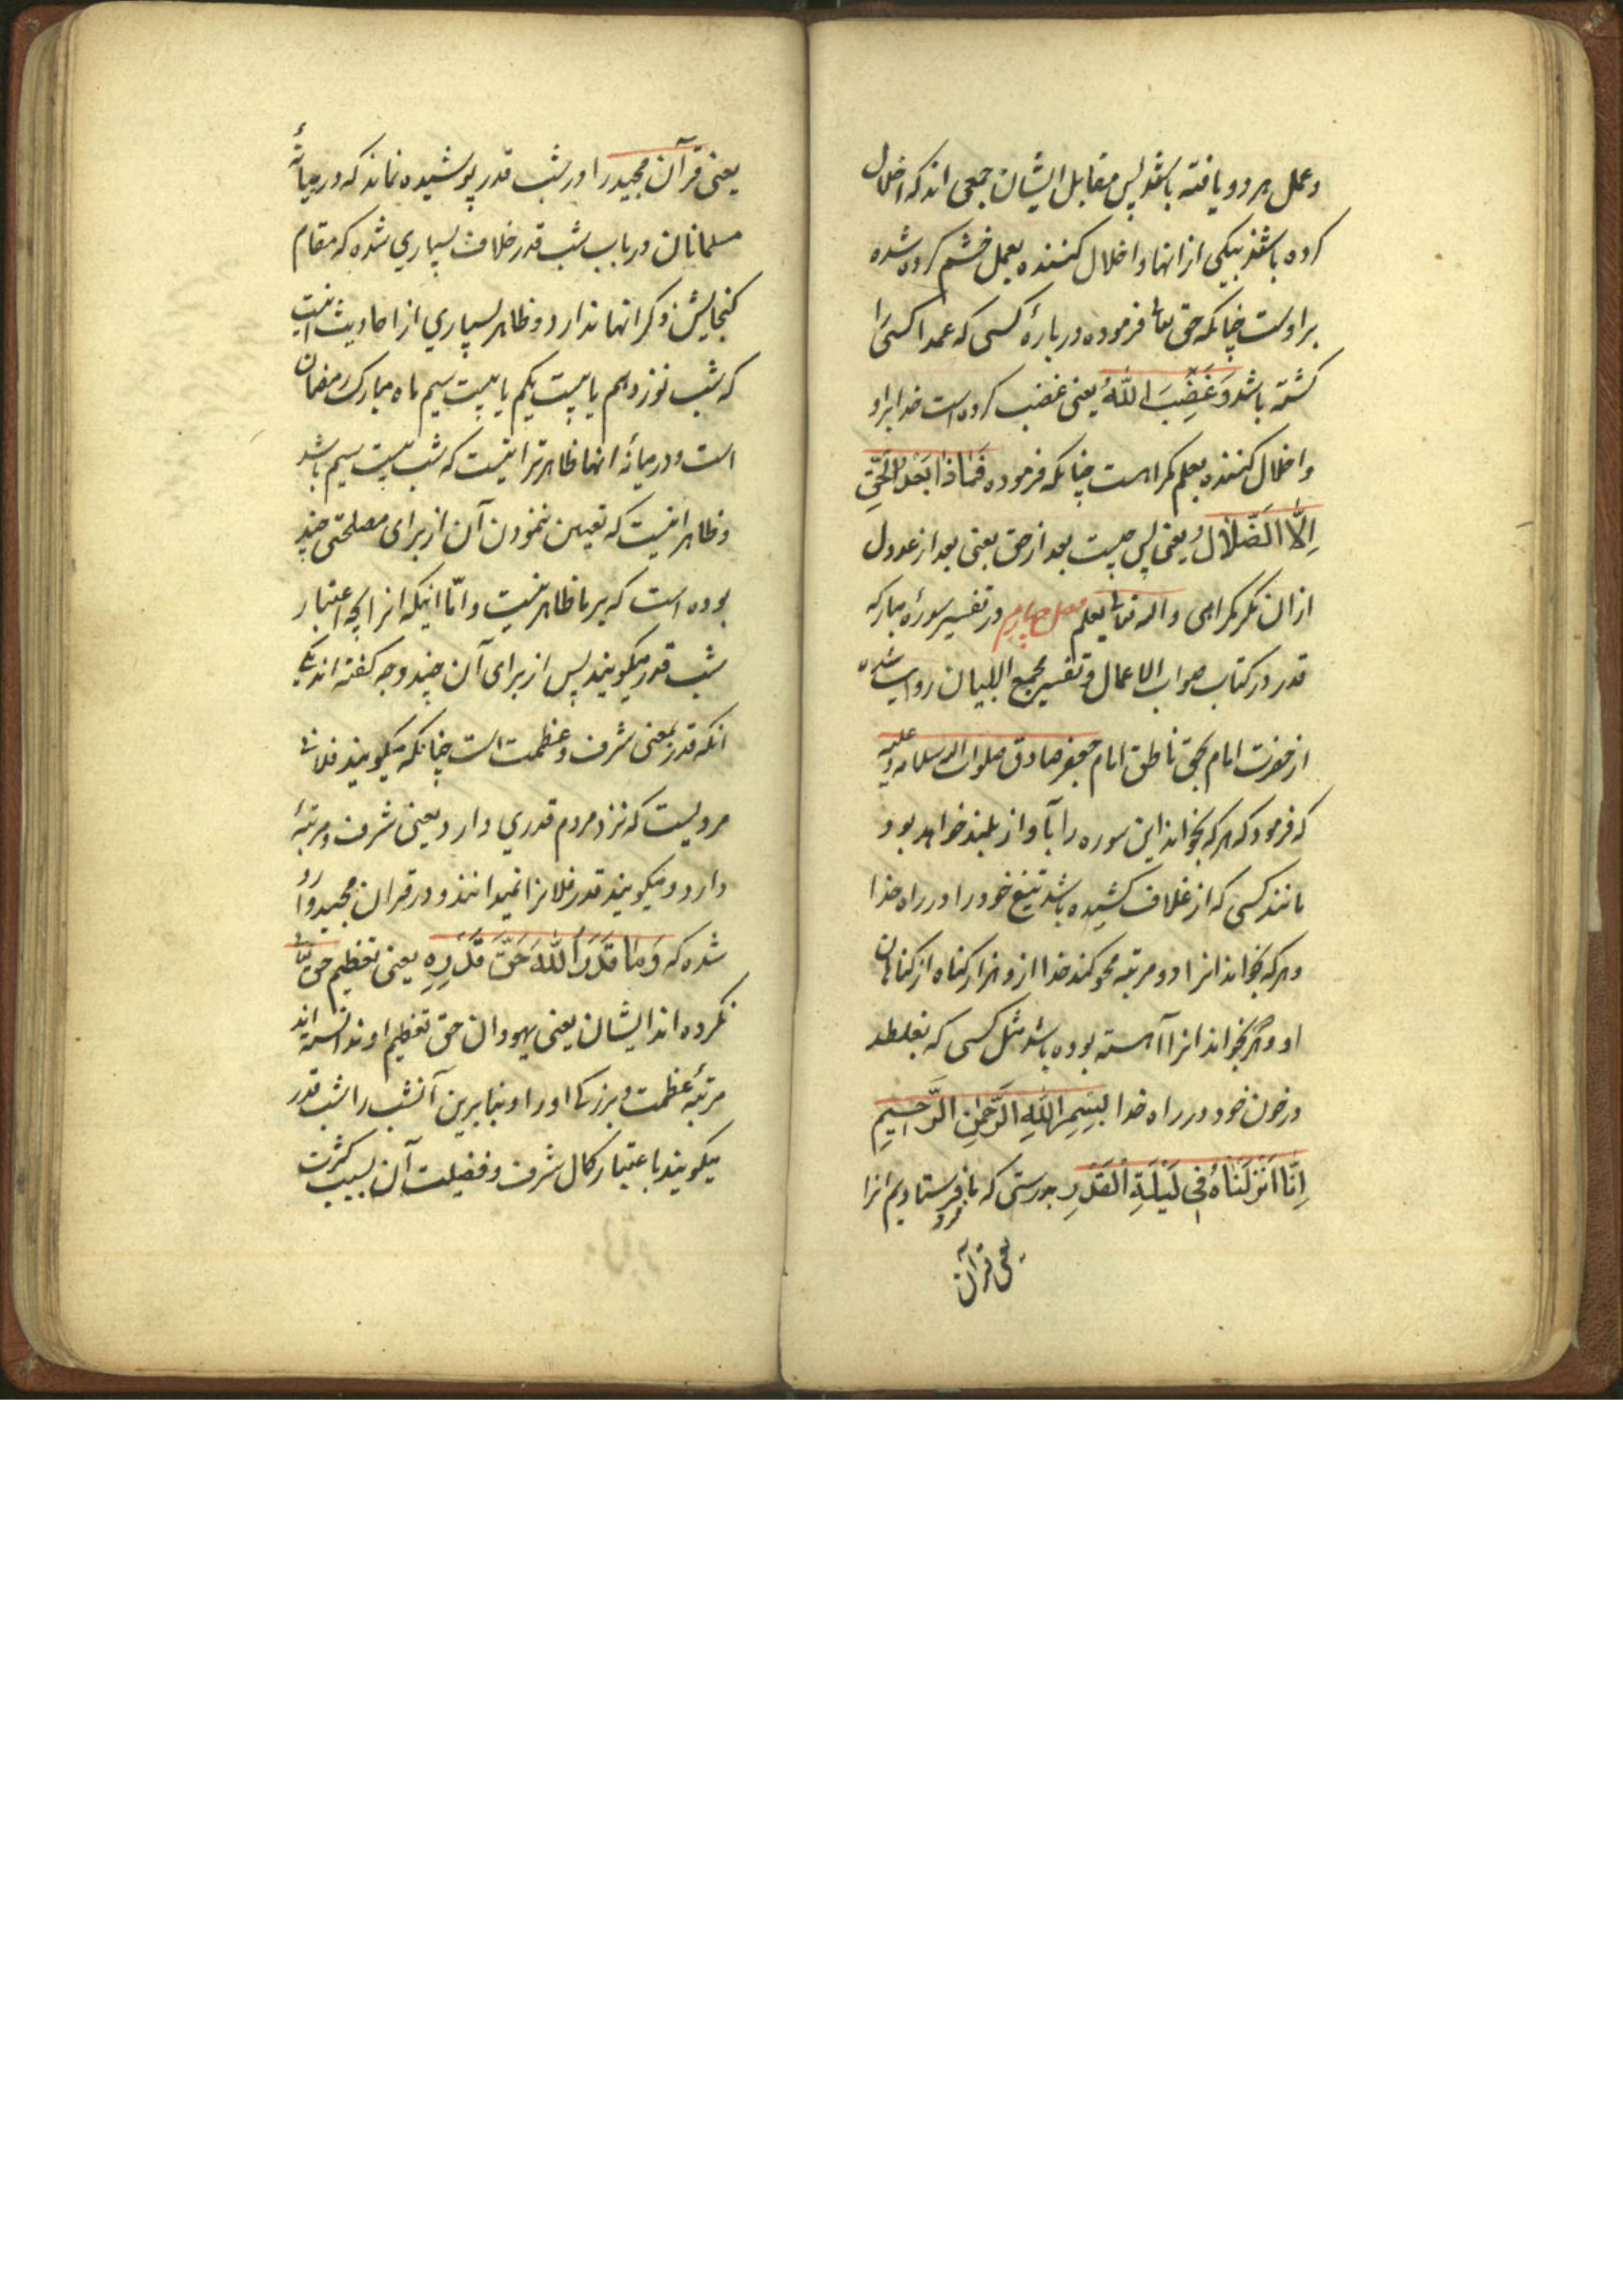 و عمل هر دو یافته باشد پس مقابل ایشان جمعی اند که اخلال
کرده باشند بیکی از انها و اخلال کننده بعمل خشم کرده شده
بر اوست چنانکه حق تعالی فرموده در بارهٔ کسی که عمدا کسی را
کشته باشد وَغَضِبَ اللّٰهُ یعنی غضب کرده است خدا بر او
و اخلال کننده بعلم گمراهست چنانکه فرموده فَمَاذَا بَعْدَ الْحَقِّ
اِلَّا الضَّلَالُ یعنی پس چیست بعد از حق یعنی بعد از عدول
از ان مگر گمراهی و الله تعالی یعلم فصل چهارم در تفسیر سورهٔ مبارکه
قدر در کتاب صواب الاعمال و تفسیر مجمع البیان روایت شده
از حضرت امام بحق ناطق امام جعفر صادق صلوات الله و سلامه علیه
که فرمود که هر که بخواند این سوره را بآواز بلند خواهد بود
مانند کسی که از غلاف کشیده باشد تیغ خود را در راه خدا
و هر که بخواند انرا دو مرتبه محو کند خدا از و هزار گناه از گناهان
او و هر که بخواند انرا آهسته بوده باشد مثل کسی که بغلطد
در خون خود در راه خدا بِسْمِ اللّٰهِ الرَّحْمٰنِ الرَّحِیمِ
اِنَّا اَنْزَلْنَاهُ فِی لَیْلَةِ الْقَدْرِ بدرستی که ما فرو فرستادیم انرا
یعنی قرآن
یعنی قرآن مجید را در شب قدر پوشیده نماند که در میانهٔ
مسلمانان در باب شب قدر خلاف بسیاری شده که مقام
گنجایش ذکر انها ندارد و ظاهر بسیاری از احادیث اینست
که شب نوزدهم یا بیست یکم یا بیست سیم ماه مبارک رمضان
است و در میانهٔ انها ظاهرتر اینست که شب بیست سیم باشد
و ظاهر اینست که تعیین ننمودن آن از برای مصلحتی چند
بوده است که بر ما ظاهر نیست و امّا اینکه انرا بچه اعتبار
شب قدر میگویند پس از برای آن چند وجه گفته اند یکی
انکه قدر بمعنی شرف و عظمت است چنانکه میگویند فلانی
مردیست که نزد مردم قدری دارد یعنی شرف و مرتبهٔ
دارد و میگویند قدر فلانرا نمیدانند و در قران مجید وارد
شده که وَمَا قَدَرُوا اللّٰهَ حَقَّ قَدْرِهِ یعنی تعظیم حق تعالی
نکرده اند ایشان یعنی یهودان حق تعظیم او و ندانسته اند
مرتبهٔ عظمت و بزرکی او را و بنا برین آنشب را شب قدر
میگویند باعتبار کمال شرف و فضیلت آن بسبب کثرت